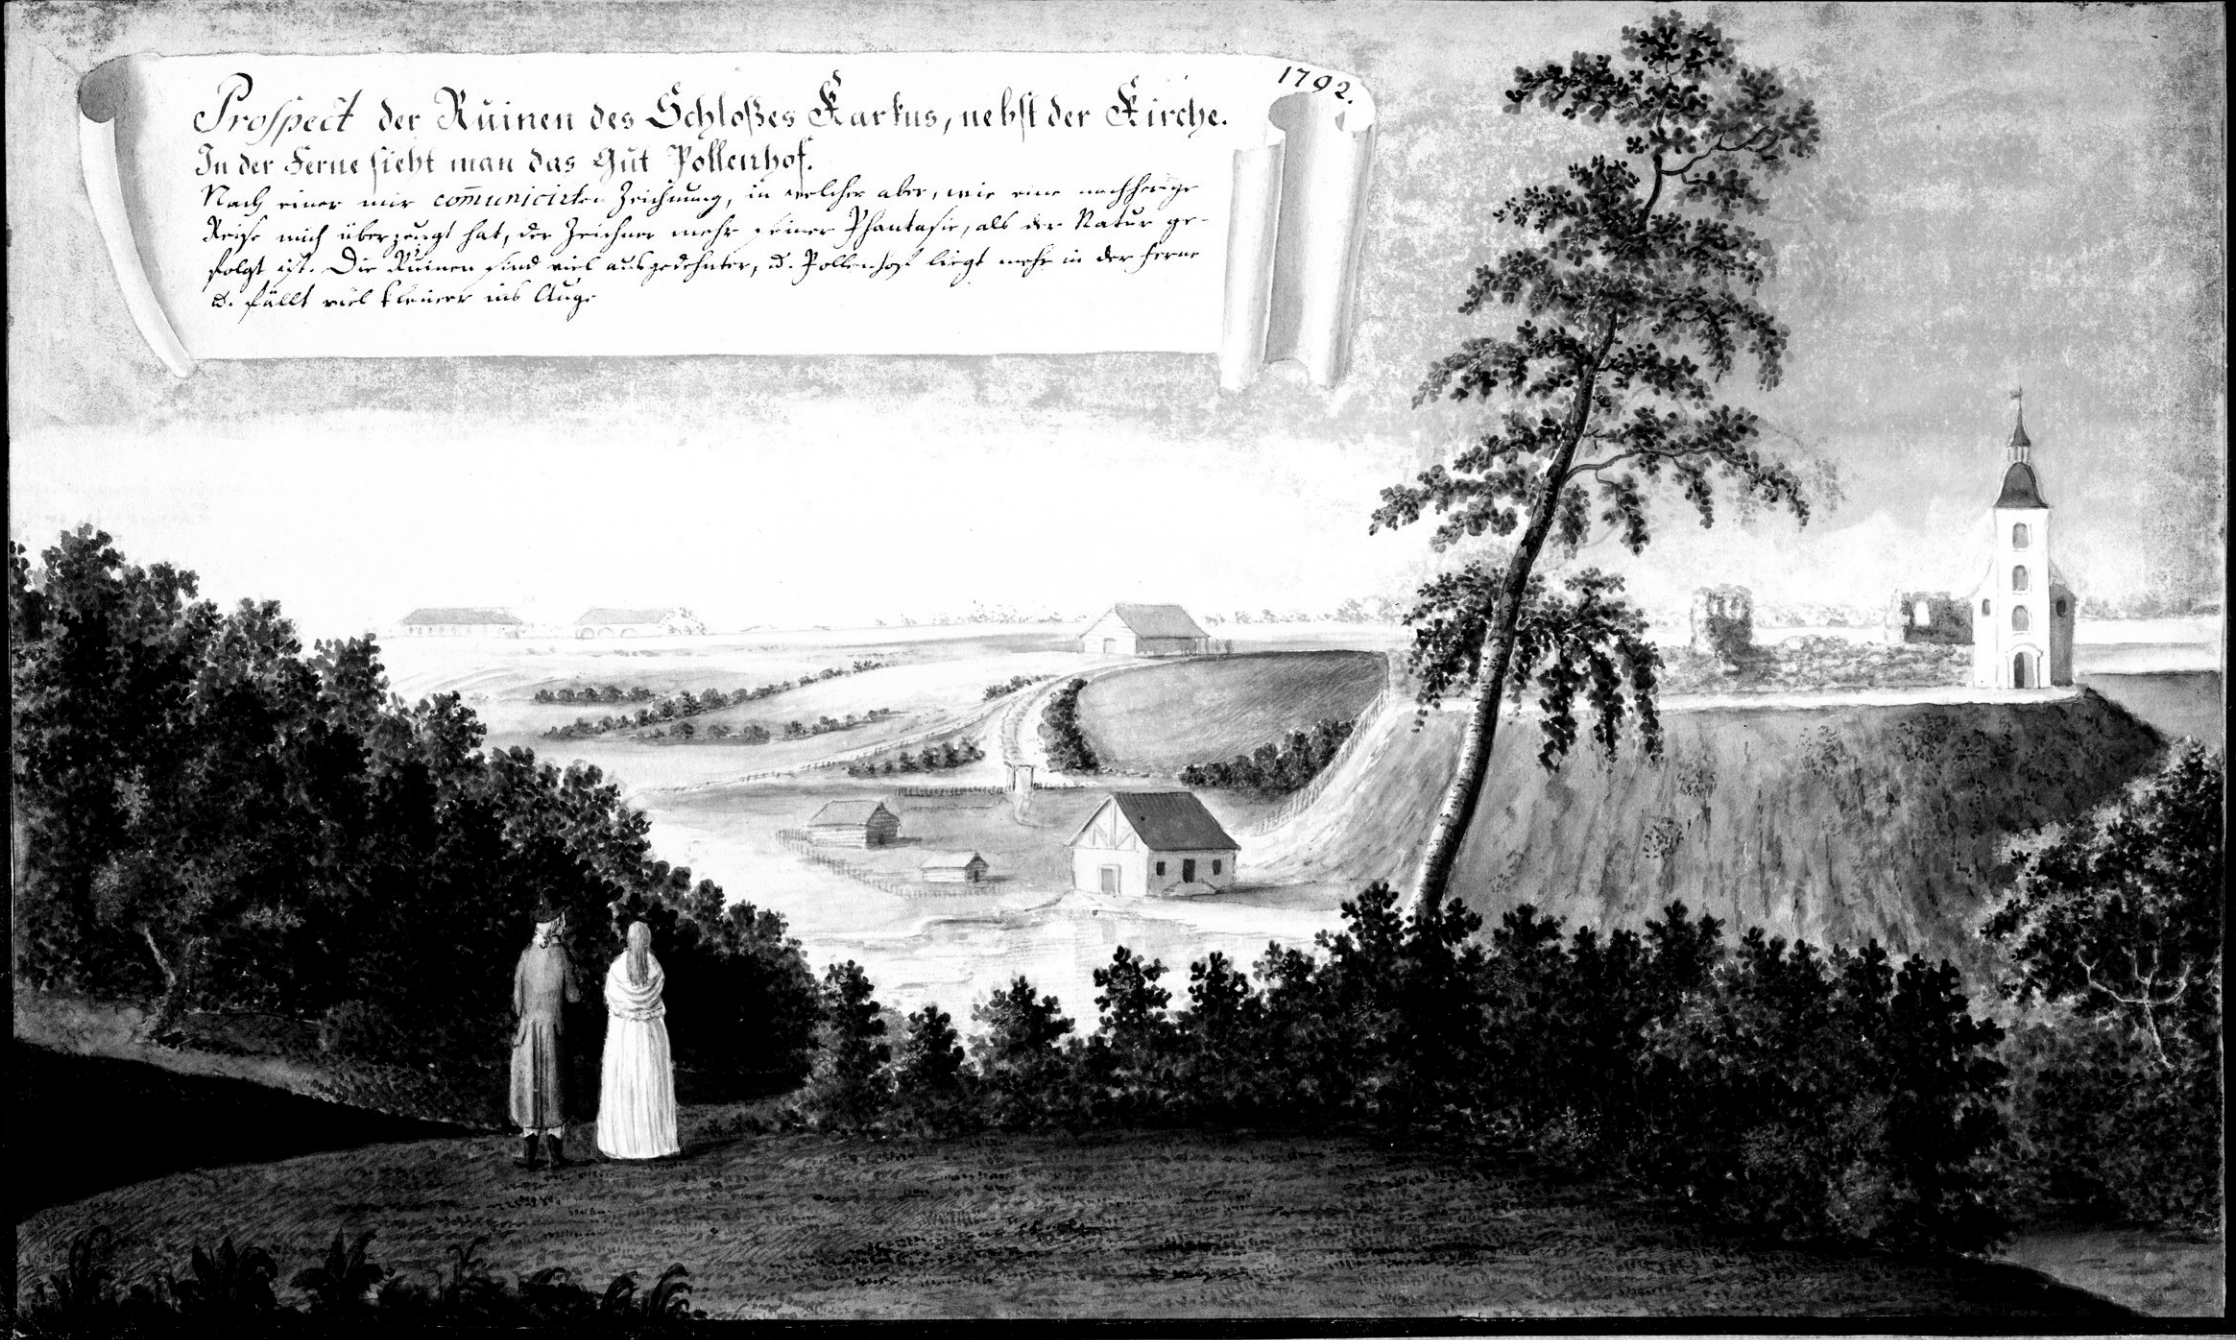 1792.
Prospect der Ruinen des Schloßes Karkus, nebst der Kirche.
In der Ferne sieht man das Gut Pollenhof.
Nach einer mir com̄unicirten Zeichnung, in welcher aber, wie eine nachherige
Reise mich überzeugt hat, der Zeichner mehr seiner Phantasie, als der Natur ge-
folgt ist. Die Ruinen sind viel ausgedehnter, u. Pollenhof liegt mehr in der Ferne
u. fällt viel kleiner ins Auge